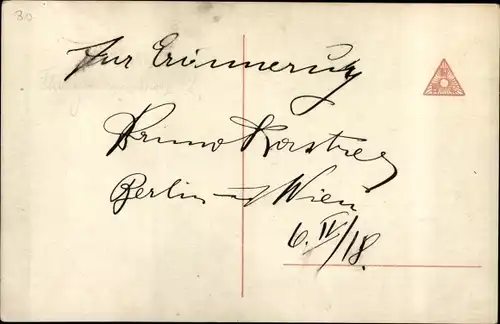 Zur Erinnerung
Bruno Kastner
Berlin u Wien
6. IV/18.